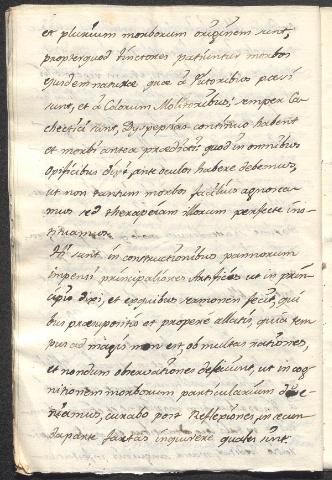 et plurium morborum originem sunt,
propterquod tinctores patiuntur morbos
ejusdem naturæ quæ à Pictoribus passi
sunt, et à Colorum Molitoribus; semper Ca-
chectici sunt, Dyspepsias continuo habent
et morbi antea prædicti quod in omnibus
Opificibus dixi, ante oculos habere debemus,
ut non tantum morbos facilius agnosca-
mus sed therapeiam illorum perfecte ins-
tituamus.
Hi sunt in constructionibus pannorum
impensi principaliores Artifices ut in prin-
cipio dixi, et ex quibus mentionem feci, qui
bus præsupositis et propere allatis, quia tem
pus ad magis non est, ob multas rationes,
et nondum observationes desunt, ut in cog
nitionem morborum particularium deve-
niamus, curabo post Reflexiones, in secun
da parte factas inquirere quales sunt